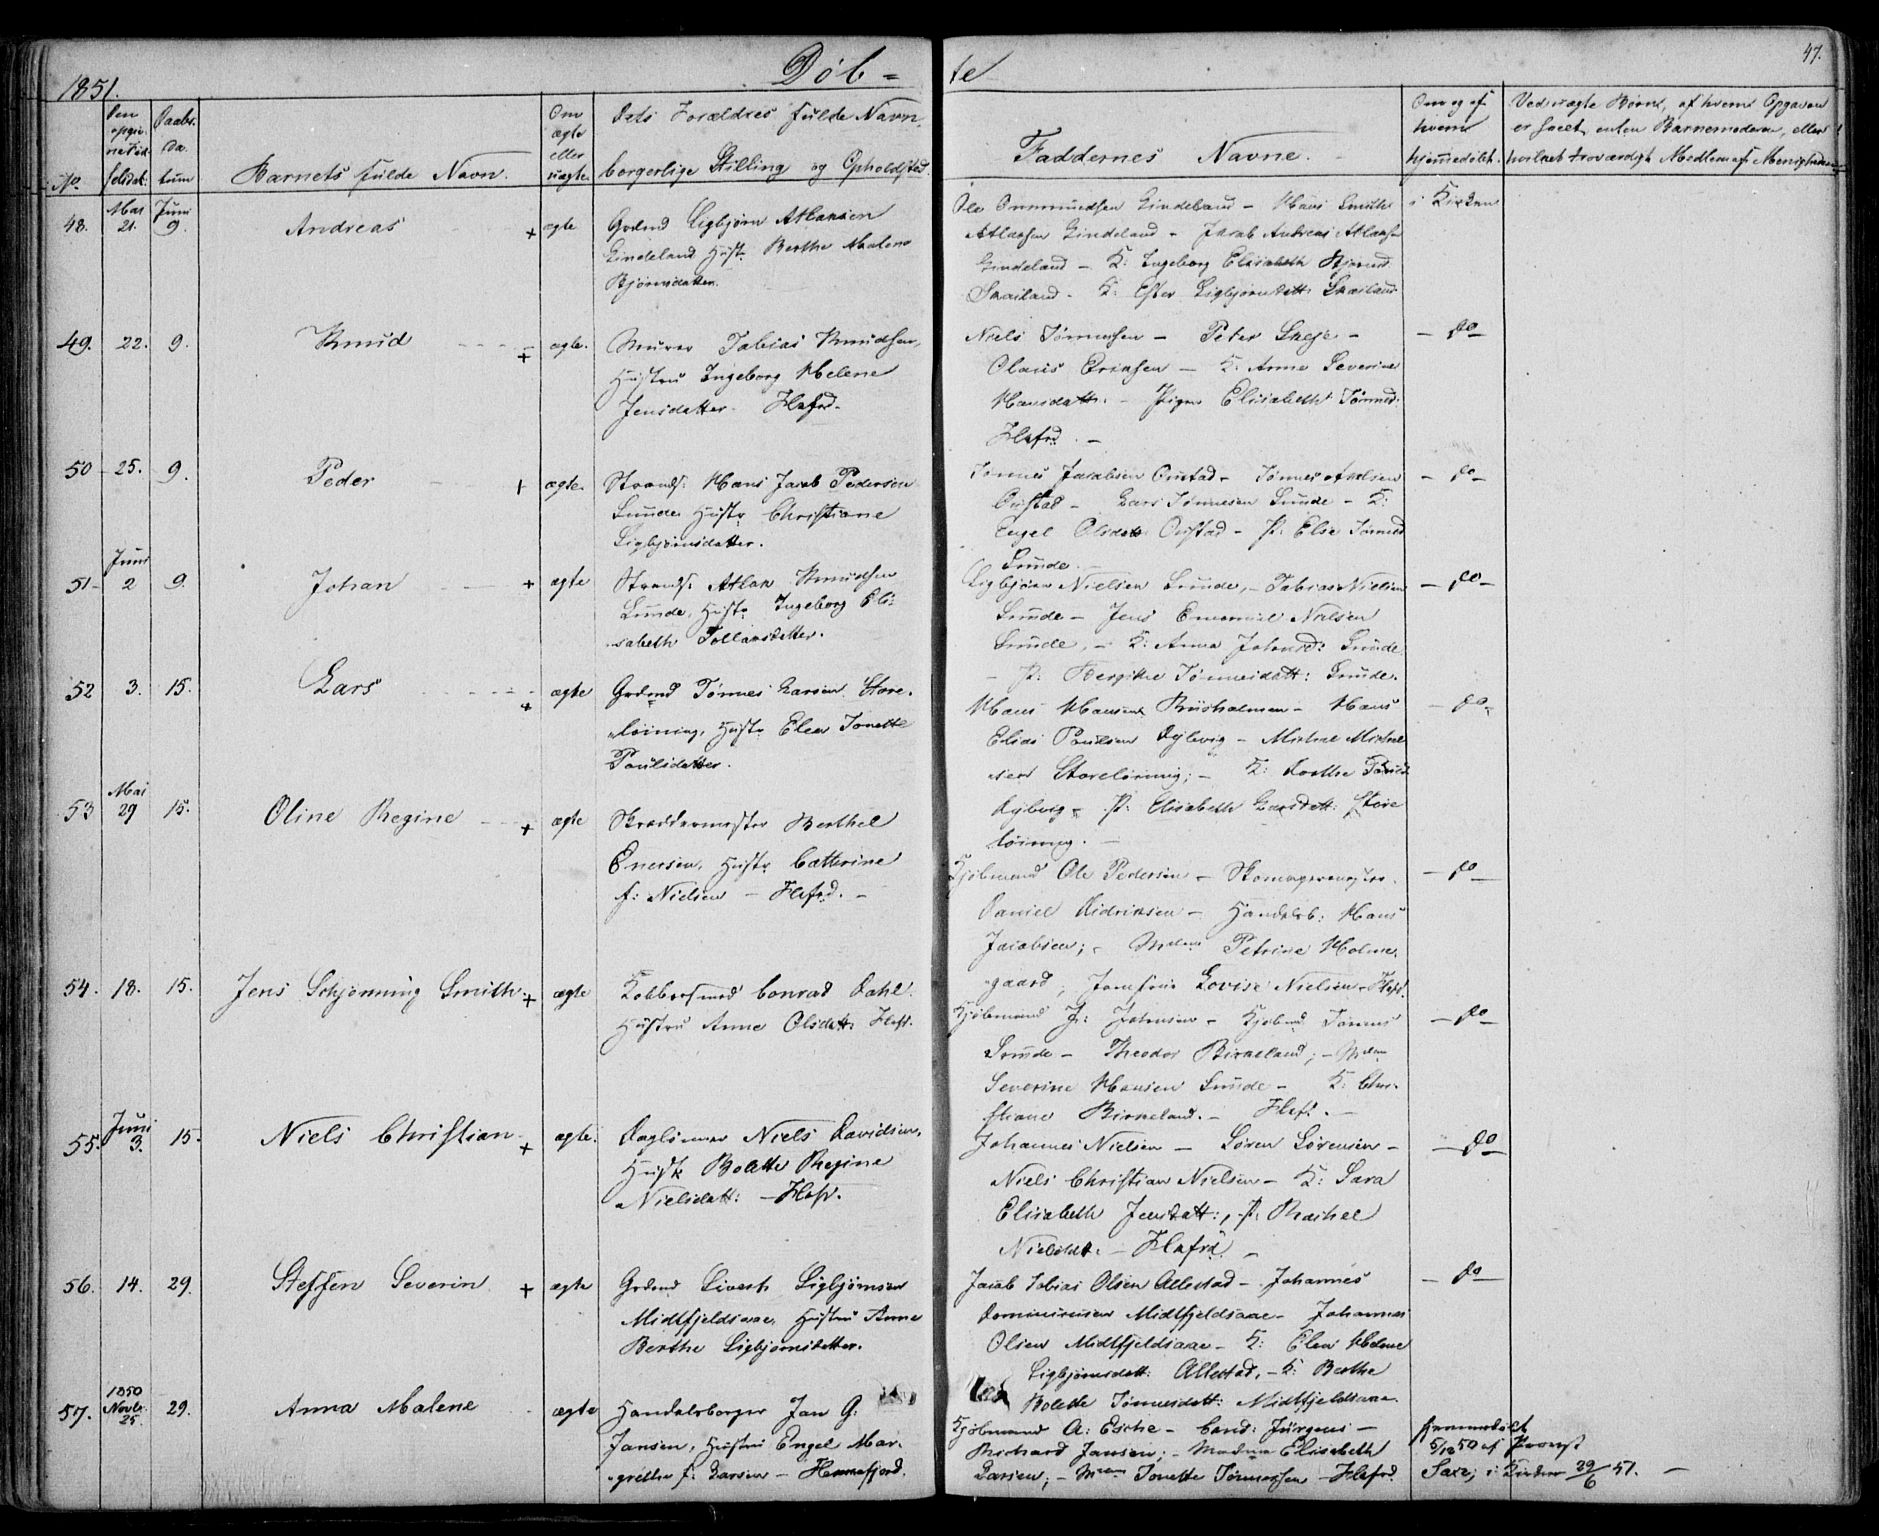 1851.
Døb =
te
47.
No
Den opgivne Fødselsdat.
Daabs Datum
Barnets fulde Navn.
Om ægte eller uægte
Dets Forældres fulde Navn,
borgerlige Stilling og Opholdsted.
Faddernes Navne.
Om og af hvem hjemmedøbt.
Ved uægte Børn, af hvem Opgaven
er skeet, enten Barnemoderen, eller
hvilket troværdigt Medlem af Menigheden
48. Mai 21. Juni 9.
Andreas + ægte
Grdmd Sigbjørn Atlaksen
Gindeland Hustr. Berthe Malene
Bjørnsdatter.
Ole Ommundsen Gindeland - Hans Smith
Atlaksen Gindeland - Jacob Andreas Atlaksen
Gindeland - K: Ingeborg Elisabeth
Skailand - K: Ester Sigbjørnsdatt: Skailand
i Kirken
49. 22. 9.
Knud + ægte.
Murer Tobias Knudsen,
Hustru Ingeborg Helene
Jensdatter. Flefrd.
Niels Tønnesen - Peter Skeje -
Olaus Eriksen - K: Anne Severine
Hansdatt: - Pigen Elisabeth Tønnesd:
Flefrd. -
- do -
50 25. 9.
Peder + ægte.
Strands. Hans Jacob Pedersen
Sunde Hustr. Christiane
Sigbjørnsdatter.
Tønnes Jacobsen Onstad - Tønnes Axelsen
Onstad - Lars Tønnesen Sunde - K:
Engel Olsdatt Onstad - P: Else Tønnesd
Sunde. -
- do -
51 - Juni 2 9.
Johan + ægte
Strands. Atlak Knudsen
Sunde, Hustr. Ingeborg Eli-
sabeth Tollaksdatter.
Sigbjørn Nielsen Sunde, - Tobias Nielsen
Sunde - Jens Emanuel Nielsen
Sunde, - K: Anna Johnsd: Sunde
- P: Bergitte Tønnesdatt: Sunde.
- do -
52 3. 15.
Lars + ægte
Grdmd Tønnes Larsen Store-
løining, Hustr. Elen Tonette
Poulsdatter.
Hans Hansen Riisholmen - Hans
Elias Poulsen Dylevig - Michael Michael-
sen Storeløining; - K: Dorthe
Dylevig - P: Elisabeth Larsdatt: Store
løining. -
- do -
53 Mai 29 15.
Oline Regine + ægte
Skræddermester Berthel
Enersen, Hustr. Cathrine
f: Nielsen - Flefrd. -
Kjøbmand Ole Pedersen - Skomagermester
Daniel Didriksen - Handelsb: Hans
Jacobsen; - Mdme Petrine Holme-
gaard; Jomfrue Lovise Nielsen - Flefr.
- do
54. 18. 15.
Jens Schjønning Smith. + ægte
Kobbersmed Conrad Dahl.
Hustru Anne Olsdatt: Flefr.
Kjøbmand J: Johnsen - Kjøbmd Tønnes
Sunde - Theodor Birkeland; - Mdme
Severine Hansen Sunde - K: Chri-
stiane Birkeland. - Flefr. -
- do -
55. Juni 3. 15.
Niels Christian + ægte.
Dagleier Niels Davidsen,
Hustr. Bolette Regine
Nielsdatt: - Flefr.
Johannes Nielsen - Søren Sørensen -
Niels Christian Nielsen - K: Sara
Elisabeth Jensdatt:, P: Rachel
Nielsdt. - Flefrd. -
- do -
56. 14. 29.
Steffen Severin + ægte
Grdmd Sivert Sigbjørnsen
Midtfjeldsaae, Hustru Anne
Berthe Sigbjørnsdatter.
Jacob Tobias Olsen Allestad - Johannes
Midtfjeldsaae - Johannes
Olsen Midtfjeldsaae - K: Elen Helene
Sigbjørnsdatt: Allestad, - K: Berthe
Bolette Tønnesdatt: Midtfjeldsaae.
- do -
57. 1850 Novbr. 25. 29.
Anna Malene ægte
Handelsborger Jan G:
Jansen, Hustru Engel Mar-
grethe f: Larsen - Flekkefjord.
Kjøbmand A: Esche - Cand: Jürgens -
Richard Jansen; - Madme Elisabeth
Larsen; - Mdme Tonette Tønnessen - Flefrd.
hjemmedøbt
5/12 50 af Provst
Saxe; i Kirken 29/6 51. -